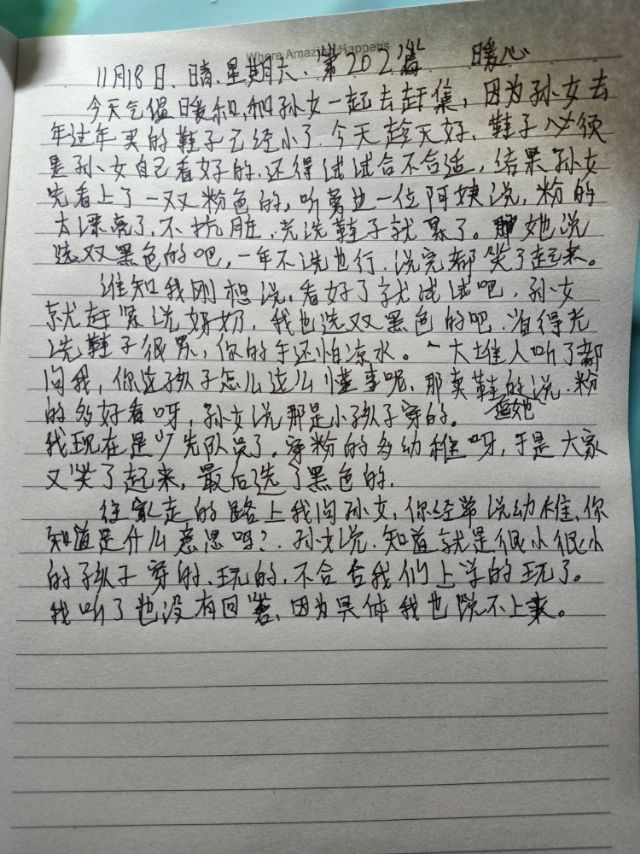 Where Amazing Happens
11月18日.晴.星期六.第202篇 暖心
今天气温暖和,和孙女一起去赶集,因为孙女去
年过年买的鞋子已经小了.今天趁天好,鞋子必须
是孙女自己看好的.还得试试合不合适,结果孙女
先看上了一双粉色的,听旁边一位阿姨说,粉的
太漂亮了.不抗脏.光洗鞋子就累了。她说
选双黑色的吧,一年不洗也行.说完都笑了起来。
谁知我刚想说,看好了就试试吧.孙女
就赶紧说好奶,我也选双黑色的吧.省得老
洗鞋子很累,你的手还怕凉水。一大堆人听了都
问我,你这孩子怎么这么懂事呢,那卖鞋的说.粉
的多好看呀,孙女说那是小孩子穿的。
我现在是少先队员了.穿粉的多幼稚呀,于是大家
又笑了起来,最后选了黑色的.
往家走的路上我问孙女,你经常说幼稚.你
知道是什么意思吗?.孙女说.知道就是很小很小
的孩子穿的.玩的,不合合我们上学的玩了。
我听了也没有回答.因为具体我也说不上来。